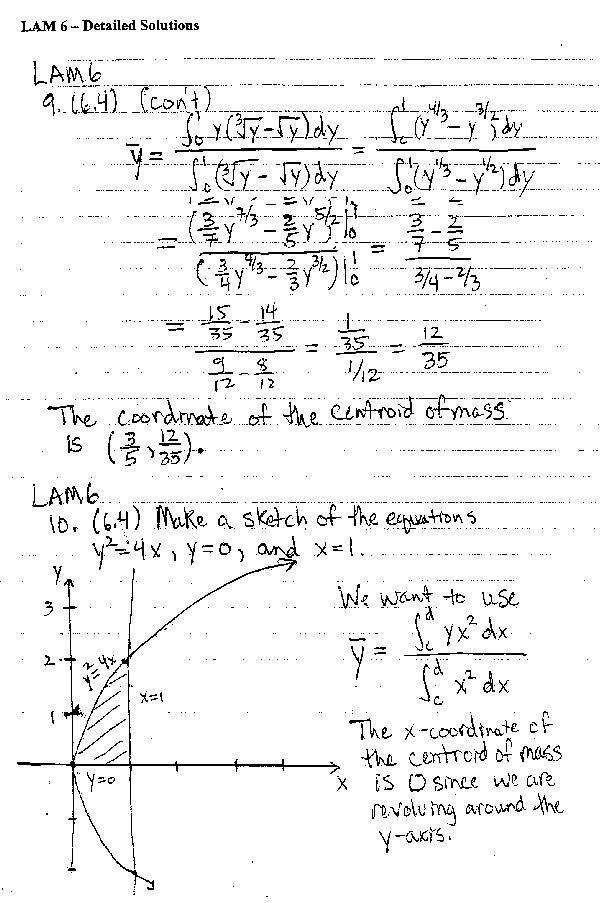 LAM 6 – Detailed Solutions
LAM 6
9. (6.4) (con't)
ȳ = ∫₀¹ y(∛y - √y) dy / ∫₀¹ (∛y - √y) dy = ∫₀¹ (y^{4/3} - y^{3/2}) dy / ∫₀¹ (y^{1/3} - y^{1/2}) dy
= (3/7 y^{7/3} - 2/5 y^{5/2})|₀¹ / (3/4 y^{4/3} - 2/3 y^{3/2})|₀¹ = (3/7 - 2/5) / (3/4 - 2/3)
= (15/35 - 14/35) / (9/12 - 8/12) = (1/35) / (1/12) = 12/35
The coordinate of the centroid of mass
is (3/5, 12/35).
LAM 6
10. (6.4) Make a sketch of the equations
y² = 4x, y = 0, and x = 1.
y
3
2
1
y² = 4x
x = 1
y = 0
x
We want to use
ȳ = ∫_c^d yx² dx / ∫_c^d x² dx
The x-coordinate of
the centroid of mass
is 0 since we are
revolving around the
y-axis.